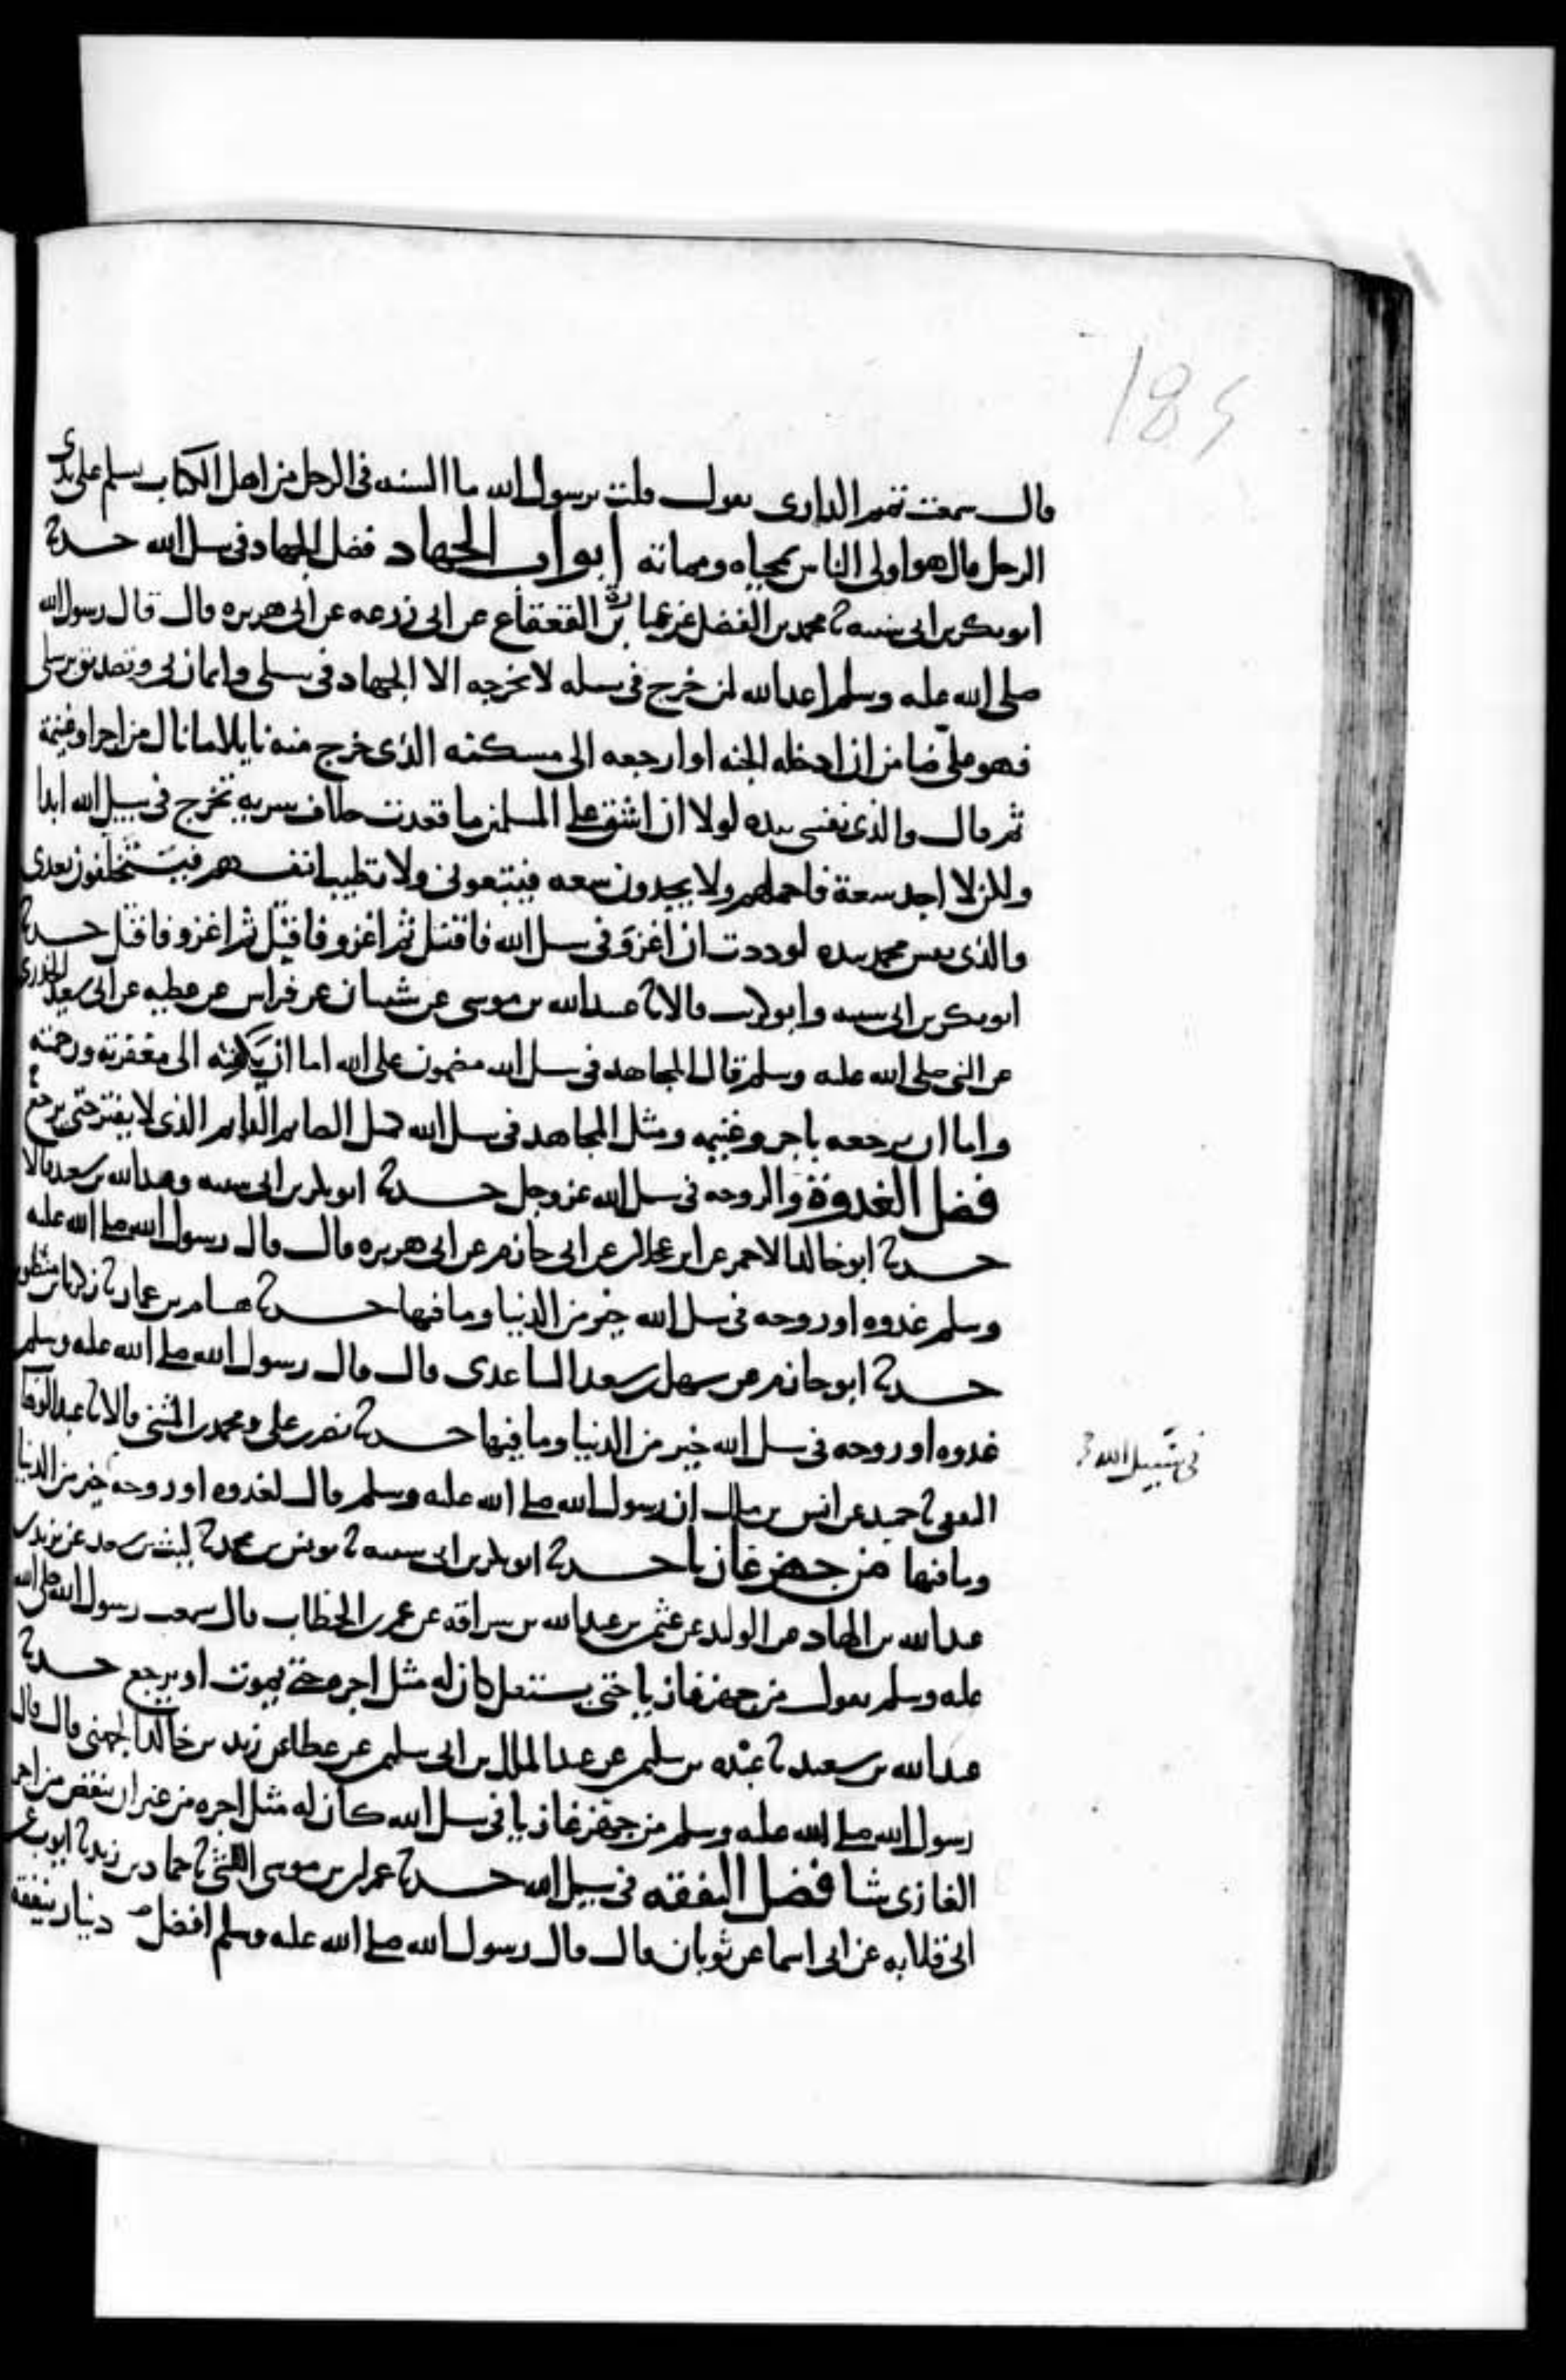 185
قال سمعت تميم الداري يقول قلت يرسول الله ما السنه في الرجل من اهل الكتاب يسلم على يدي
الرجل قال هو اولى الناس بمحياه ومماته ابواب الجهاد فضل الجهاد في سبيل الله حدثنا
ابو بكر بن ابي شيبه ثنا محمد بن الفضل عن عمارة بن القعقاع عن ابي زرعه عن ابي هريره قال قال رسول الله
صلى الله عليه وسلم اعد الله لمن خرج في سبيله لا يخرجه الا الجهاد في سبيلي وايمان بي وتصديق برسلي
فهو عليّ ضامن ان ادخله الجنه او ارجعه الى مسكنه الذي خرج منه نايلا ما نال من اجر او غنيمة
ثم قال والذي نفسي بيده لولا ان اشق على المسلمين ما قعدت خلاف سريه تخرج في سبيل الله ابدا
ولكن لا اجد سعة فاحملهم ولا يجدون سعه فيتبعوني ولا تطيب انفسهم فيتخلفون بعدي
والذي نفس محمد بيده لوددت ان اغزو في سبيل الله فاقتل ثم اغزو فاقتل ثم اغزو فاقتل حدثنا
ابو بكر بن ابي شيبه وابو كريب قالا ثنا عبيد الله بن موسى عن شيبان عن فراس عن عطيه عن ابي سعيد الخدري
عن النبي صلى الله عليه وسلم قال المجاهد في سبيل الله مضمون على الله اما ان يكفته الى مغفرته ورحمته
واما ان يرجعه باجر وغنيمه ومثل المجاهد في سبيل الله كمثل الصايم القايم الذي لا يفتر حتى يرجع
فضل الغدوة والروحه في سبيل الله عز وجل حدثنا ابو بكر بن ابي شيبه وعبد الله بن سعيد قالا
حدثنا ابو خالد الاحمر عن ابن عجلان عن ابي حازم عن ابي هريره قال قال رسول الله صلى الله عليه
وسلم غدوه او روحه في سبيل الله خير من الدنيا وما فيها حدثنا هشام بن عمار ثنا زكريا بن منظور
حدثنا ابو حازم عن سهل بن سعد الساعدي قال قال رسول الله صلى الله عليه وسلم
غدوه او روحه في سبيل الله خير من الدنيا وما فيها حدثنا نصر بن علي ومحمد بن المثنى قالا ثنا عبد الوهاب
الثقفي ثنا حميد عن انس بن مالك ان رسول الله صلى الله عليه وسلم قال لغدوه او روحة خير من الدنيا
في سبيل الله
وما فيها من جهز غازيا حدثنا ابو بكر بن ابي شيبه ثنا يونس بن محمد ثنا ليث بن سعد عن يزيد بن
عبد الله بن الهاد عن الوليد عن عثمن بن عبد الله بن سراقه عن عمر بن الخطاب قال سمعت رسول الله صلى الله
عليه وسلم يقول من جهز غازيا حتى يستقل كان له مثل اجره حتى يموت او يرجع حدثنا
عبد الله بن سعيد ثنا عبده بن سليمن عن عبد الملك بن ابي سليمن عن عطا عن زيد بن خالد الجهني قال قال
رسول الله صلى الله عليه وسلم من جهز غازيا في سبيل الله كان له مثل اجره من غير ان ينقص من اجر
الغازي شيا فضل النفقه في سبيل الله حدثنا عمران بن موسى الليثي ثنا حماد بن زيد ثنا ايوب عن
ابي قلابه عن ابي اسما عن ثوبان قال قال رسول الله صلى الله عليه وسلم افضل دينار ينفقه